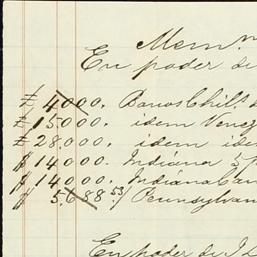 Mem.
En poder de
£ 4000. Bonos Chil.s d
£ 15.000. idem Venez
£ 28.000. idem ide
$ 14000. Indiana 5 p
$ 14000. Indiana Can
$ 5.088.53/ Pennsylvan
En poder de J. L